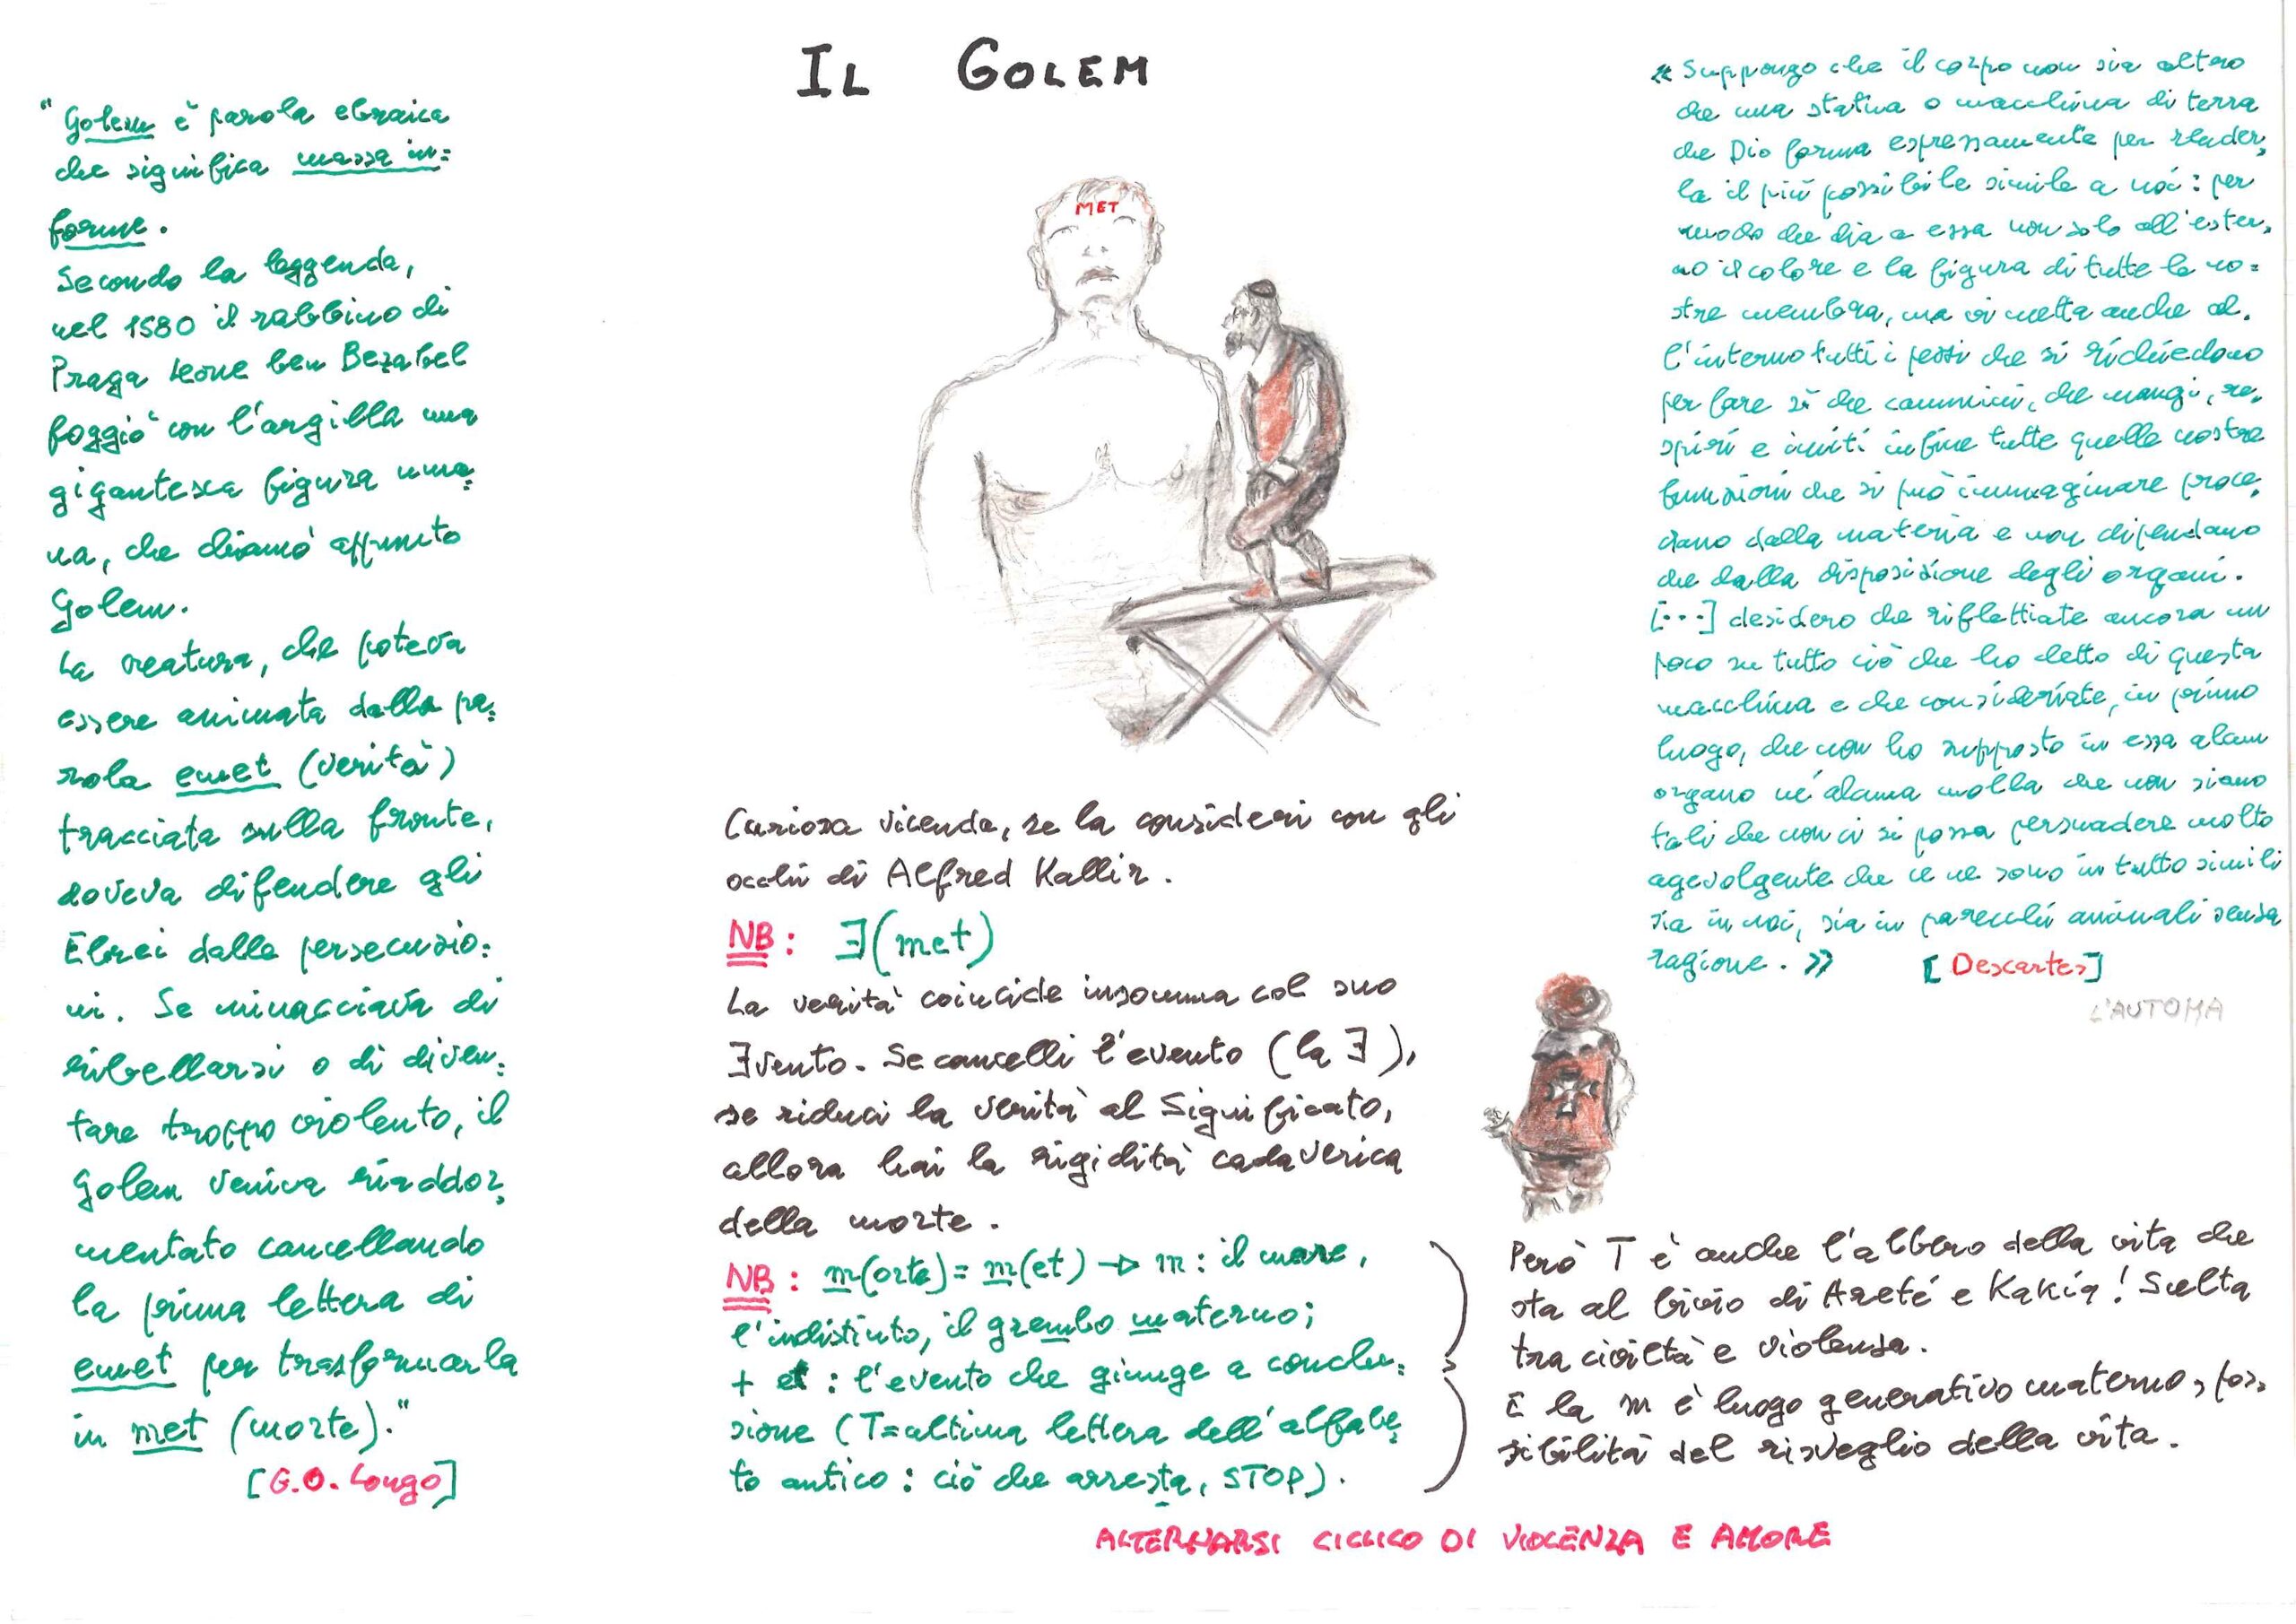 IL GOLEM
"Golem è parola ebraica
che significa massa in=
forme.
Secondo la leggenda,
nel 1580 il rabbino di
Praga Leone ben Bezabel
foggiò con l'argilla una
gigantesca figura uma=
na, che chiamò appunto
Golem.
La creatura, che poteva
essere animata dalla pa=
rola emet (verità)
tracciata sulla fronte,
doveva difendere gli
Ebrei dalle persecuzio=
ni. Se minacciava di
ribellarsi o di diven=
tare troppo violento, il
Golem veniva riaddor=
mentato cancellando
la prima lettera di
emet per trasformarla
in met (morte)."
[G.O. Longo]
MET
Curiosa vicenda, se la consideri con gli
occhi di Alfred Kallir.
NB: ∃(met)
La verità coincide insomma col suo
∃vento. Se cancelli l'evento (la ∃),
se riduci la verità al Significato,
allora hai la rigidità cadaverica
della morte.
NB: m(orte) = m(et) → m: il mare,
l'indistinto, il grembo materno;
+ et: l'evento che giunge a conclu=
sione (T=ultima lettera dell'alfabe=
to antico: ciò che arresta, STOP).
«Suppongo che il corpo non sia altro
che una statua o macchina di terra
che Dio forma espressamente per render=
la il più possibile simile a noi: per
modo che dia a essa non solo all'ester=
no il colore e la figura di tutte le no=
stre membra, ma vi metta anche al=
l'interno tutti i pezzi che si richiedono
per fare sì che cammini, che mangi, re=
spiri e imiti infine tutte quelle nostre
funzioni che si può immaginare proce=
dano dalla materia e non dipendano
che dalla disposizione degli organi.
[...] desidero che riflettiate ancora un
poco su tutto ciò che ho detto di questa
macchina e che consideriate, in primo
luogo, che non ho supposto in essa alcun
organo né alcuna molla che non siano
tali che non ci si possa persuadere molto
agevolgente che ce ne sono in tutto simili
sia in noi, sia in parecchi animali senza
ragione.» [Descartes]
L'AUTOMA
Però T è anche l'albero della vita che
sta al bivio di Areté e Kakía! Scelta
tra civiltà e violenza.
E la m è luogo generativo materno, pos=
sibilità del risveglio della vita.
ALTERNARSI CICLICO DI VIOLENZA E AMORE